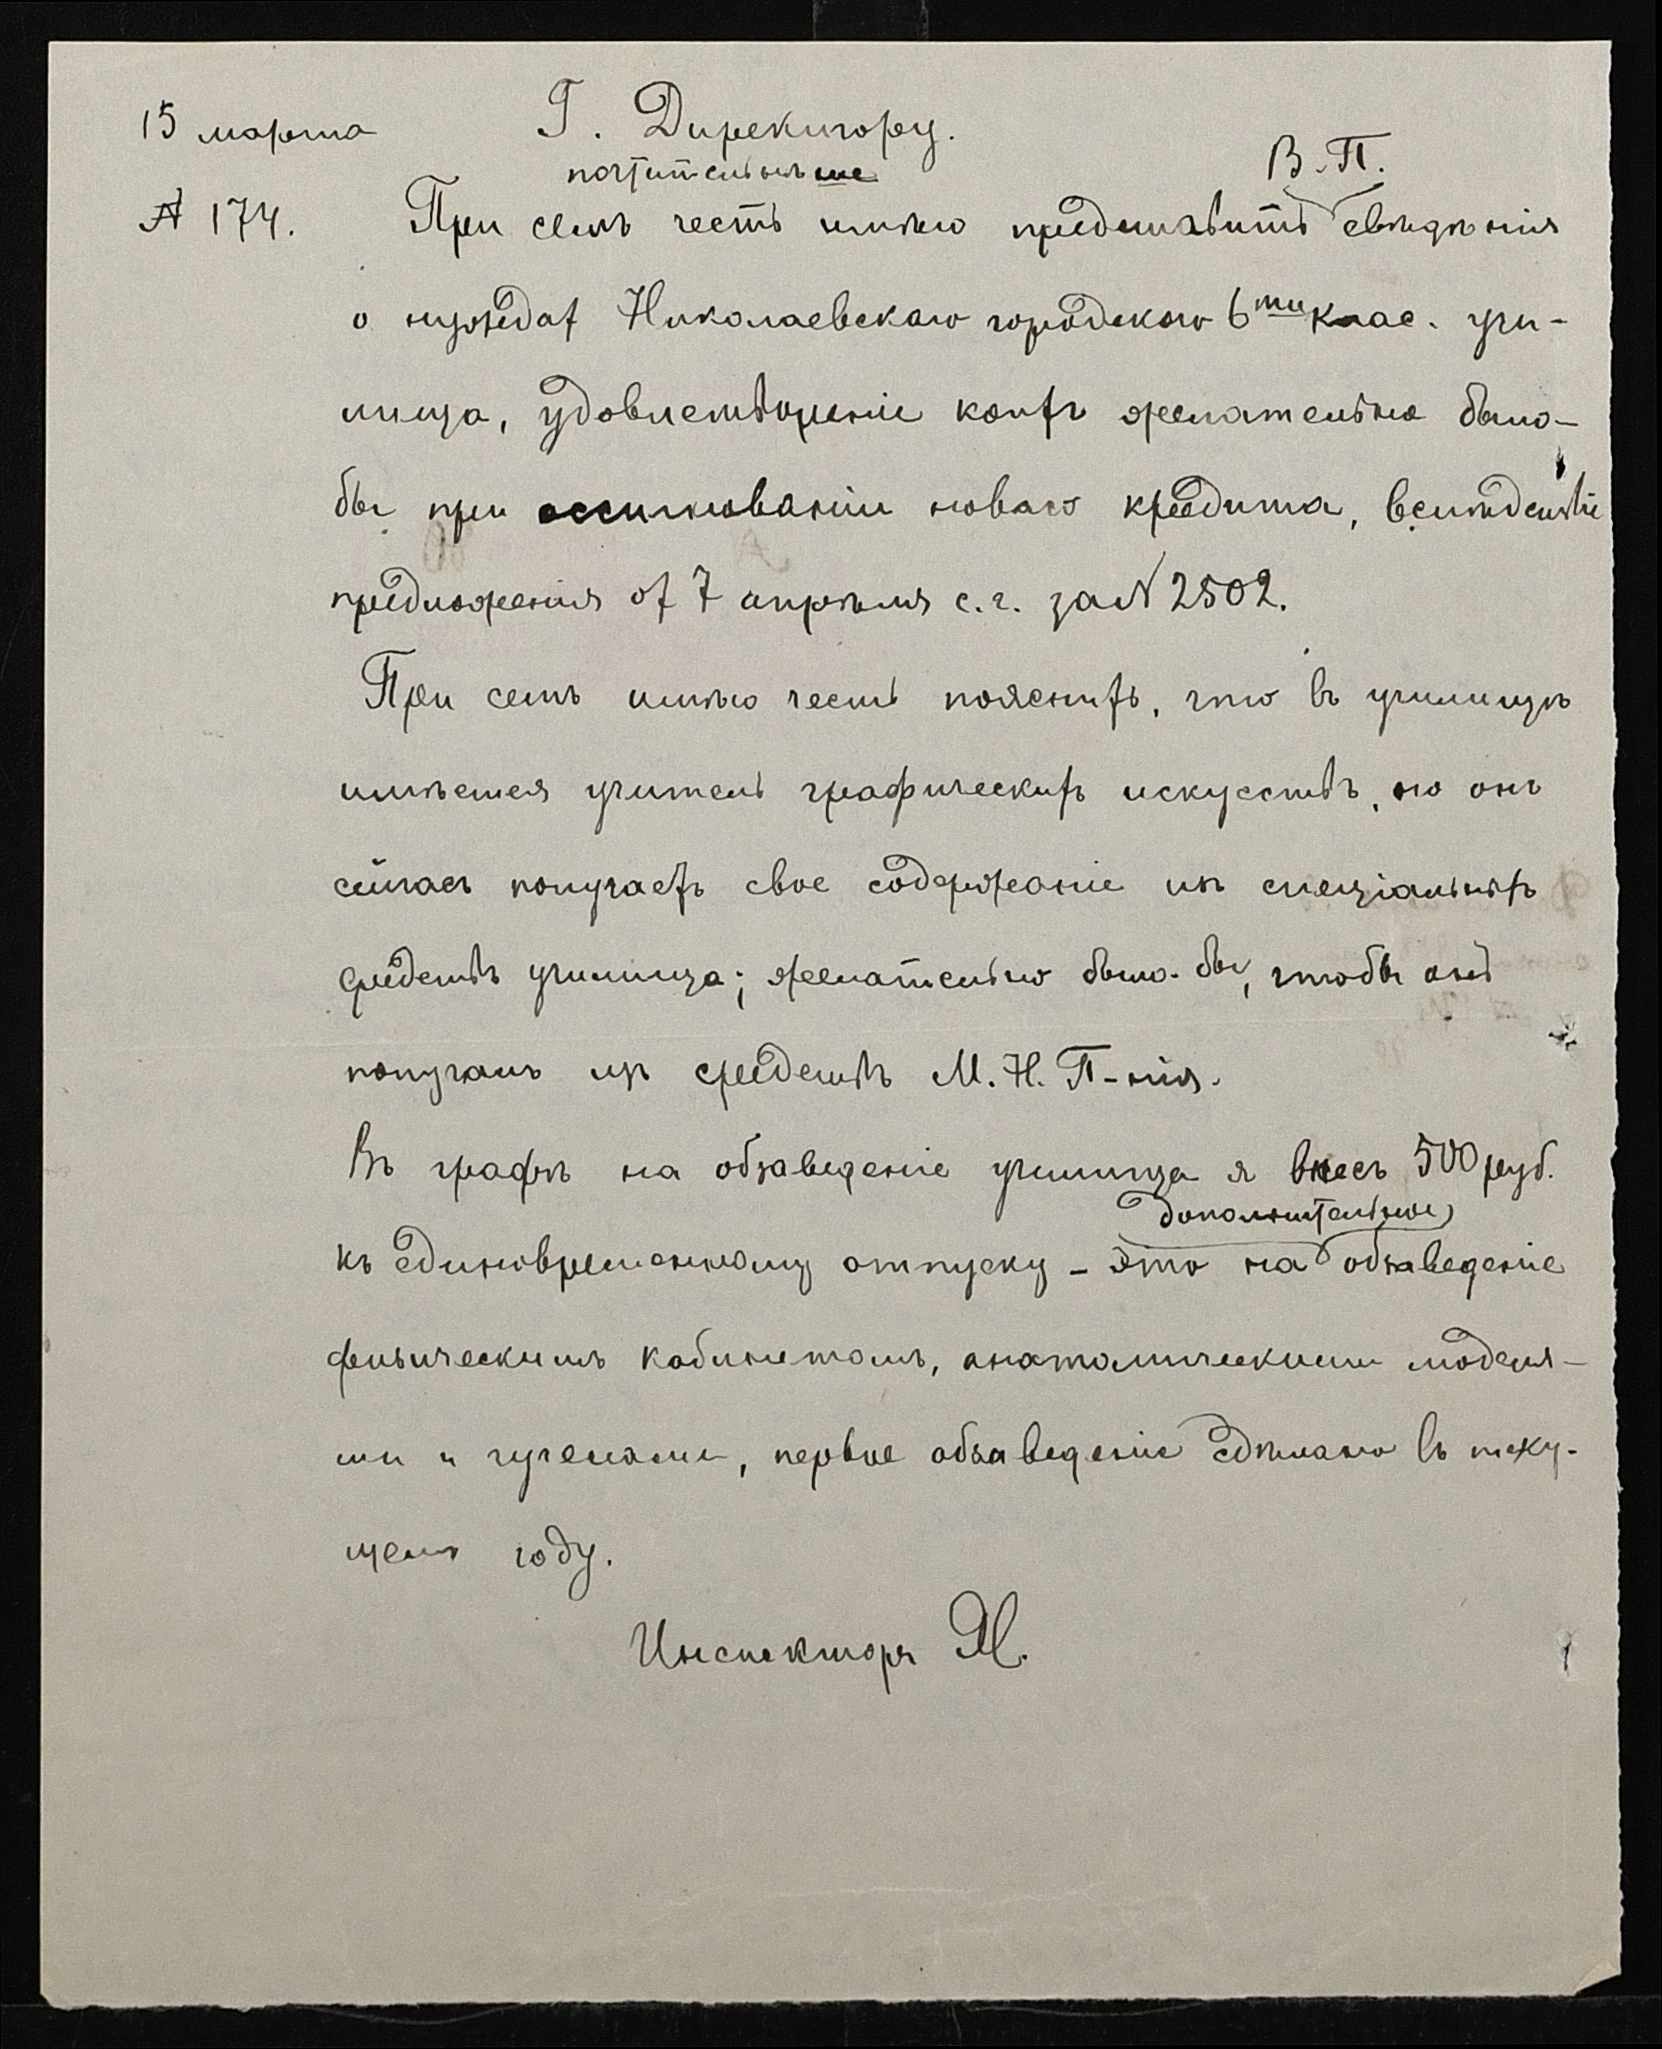 15 марта
Г. Директору.
почтительнѣйше
В. П.
№ 174.
При семъ честь имѣю представить свѣдѣнія
о нуждах Николаевскаго городского 6ти клас. учи-
лища, удовлетвореніе коихъ желательно было-
бы при ассигнованіи новаго кредита, вслѣдствіе
предложенія от 7 апрѣля с. г. за № 2502.
При семъ имѣю честь пояснить, что въ училищѣ
имѣется учитель графическихъ искусствъ, но онъ
сейчасъ получаетъ свое содержаніе изъ спеціальныхъ
средствъ училища; желательно было-бы, чтобы онъ
получалъ изъ средствъ М. Н. П-нія.
Въ графѣ на обзаведеніе училища я внесъ 500 руб.
дополнительное
къ единовременному отпуску – это на обзаведеніе
физическимъ кабинетомъ, анатомическими моделя-
ми и чучелами, первое обзаведеніе сдѣлано въ теку-
щемъ году.
Инспекторъ